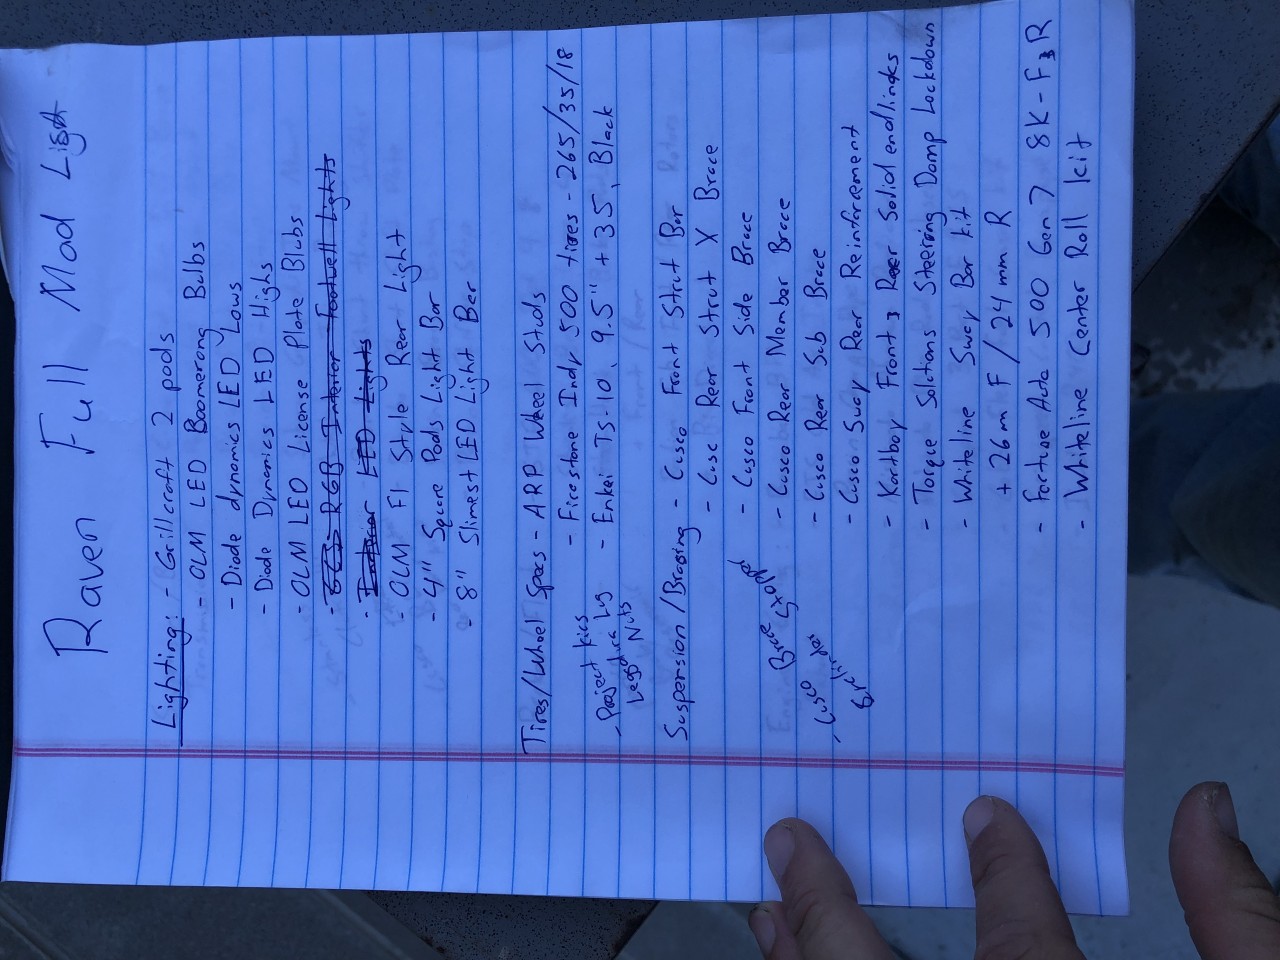 Raven Full Mod List
Lighting: - Grillcraft 2 pods
- OLM LED Boomerong Bulbs
- Diode dynamics LED Lows
- Diode Dynamics LED Highs
- OLM LED License Plate Blubs
- RGB Interior Footwell Lights
- Interior LED Lights
- OLM F1 Style Rear Light
- 4" Square Pods Light Bar
- 8" Slimest LED Light Bar
Tires/Wheel Specs - ARP Wheel Studs
- Firestone Indy 500 tires - 265/35/18
- Enkei TS-10, 9.5" + 35, Black
- Project Kics
Leggdura Lug
Nuts
Suspension/Brasing - Cusco Front Strut Bar
- Cusc Rear Strut X Brace
- Cusco Front Side Brace
- Cusco Rear Member Brace
- Cusco Rear Sub Brace
- Cusco Sway Rear Reinforcement
- Kartboy Front & Rear Solid endlinks
- Torque Solutions Steering Damp Lockdown
- Whiteline Sway Bar kit
+ 26m F / 24mm R
- Fortune Auto 500 Gen 7 8K - F & R
- Whiteline Center Roll kit
- Cusco Brake
Cylinder